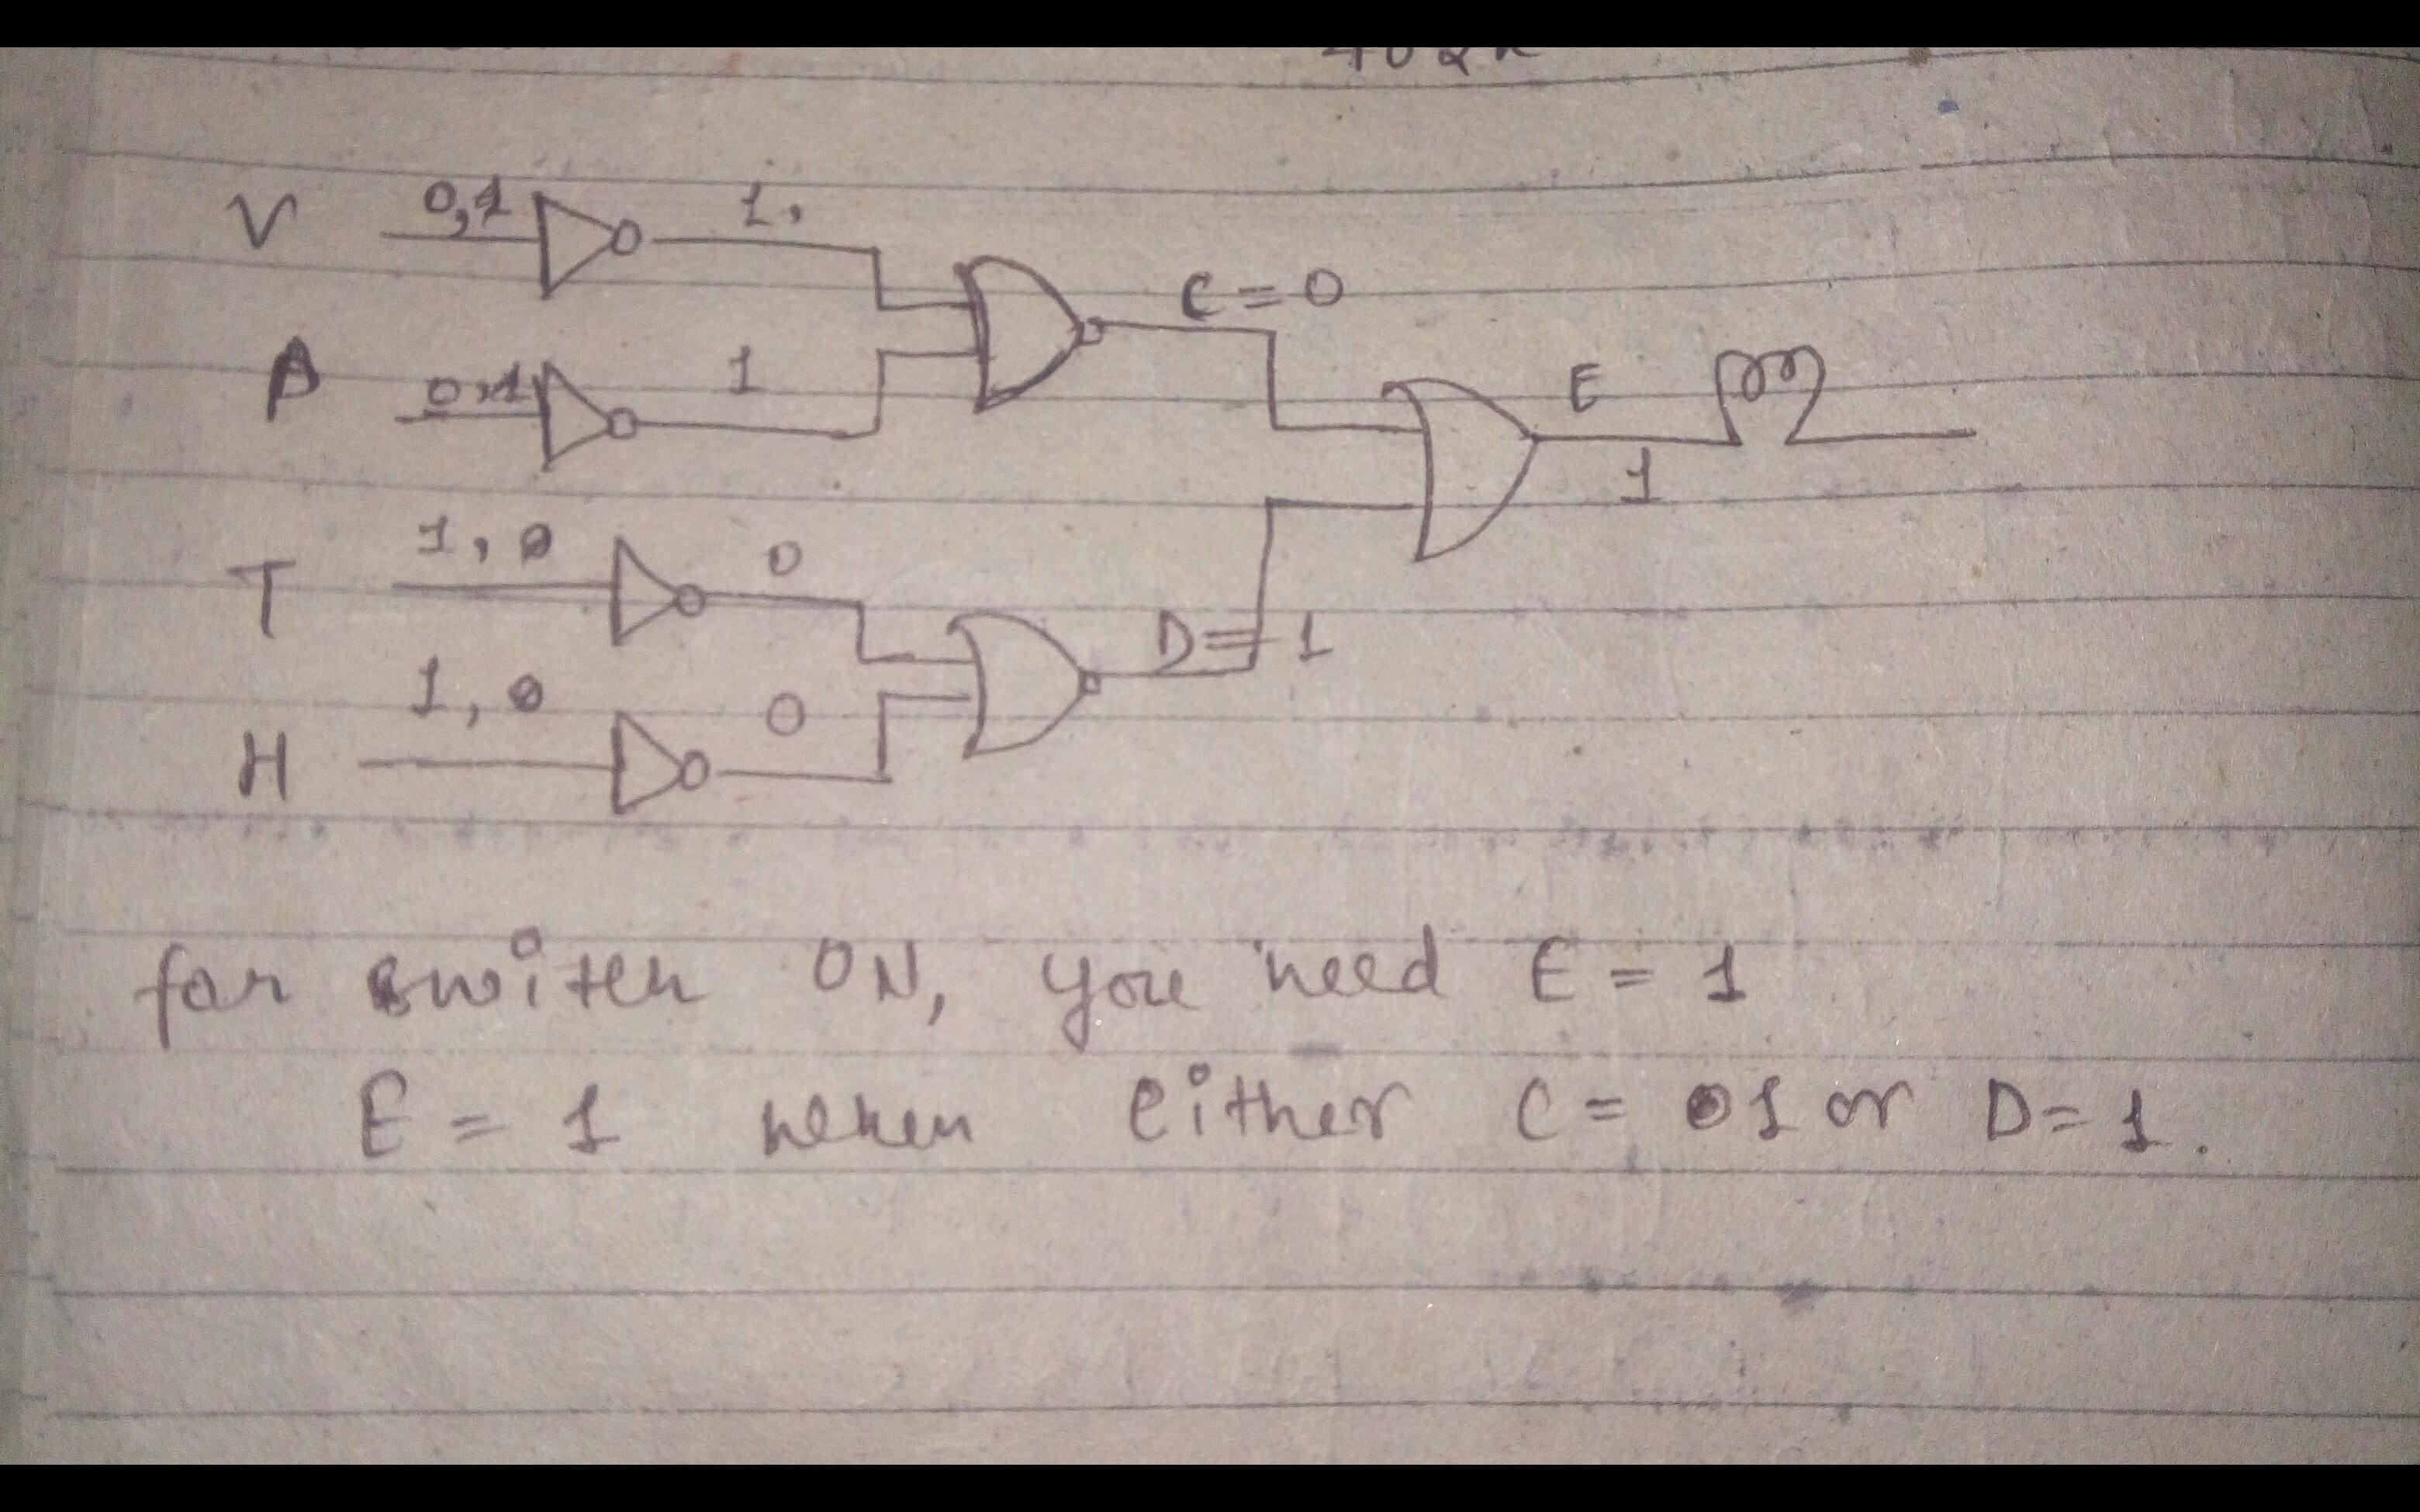 V 0,1 1,
C = 0
A 0,1 1
E
1
T 1, 0 0
D = 1
H 1, 0 0
for switch ON, you need E = 1
E = 1 when either C = 1 or D = 1.